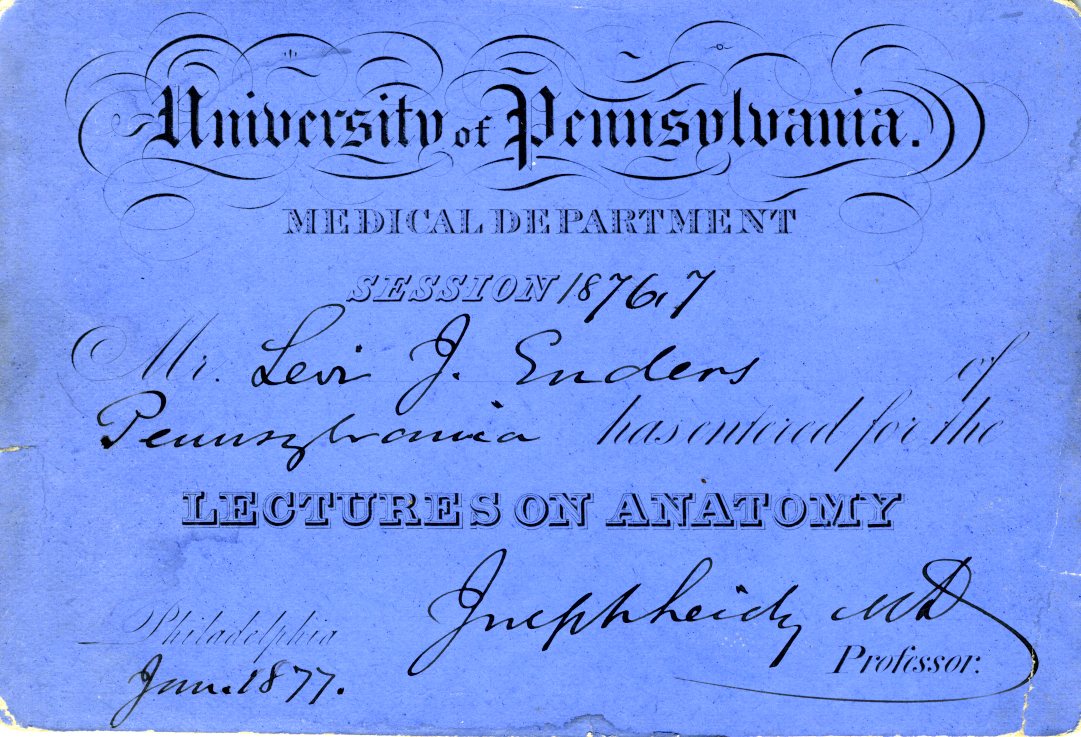 University of Pennsylvania.
MEDICAL DEPARTMENT
SESSION 1876,7
Mr. Levi J. Enders of
Pennsylvania has entered for the
LECTURES ON ANATOMY
Joseph Leidy MD
Professor.
Philadelphia
Jan. 1877.